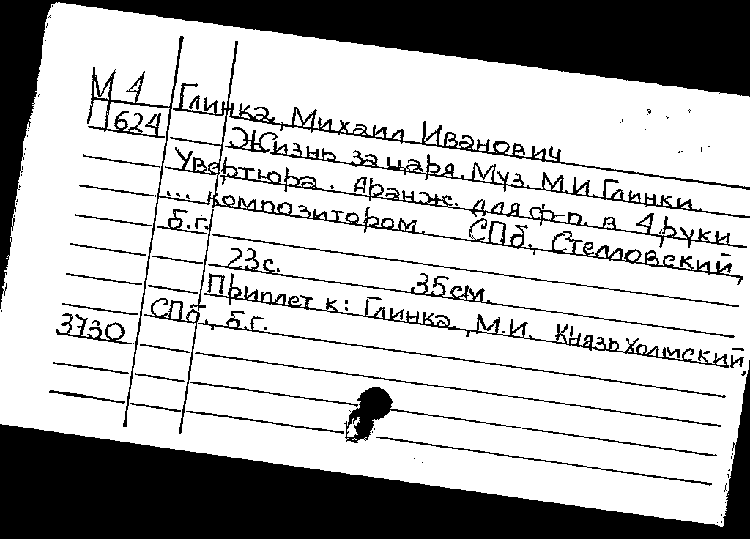 М 4
П 624
Глинка, Михаил Иванович
Жизнь за царя. Муз. М.И. Глинки.
Увертюра. Аранж. для ф-п. в 4 руки
... композитором. СПб., Стелловский,
б.г.
23 с. 35 см.
Приплет к: Глинка, М.И. Князь Холмский,
СПб., б.г.
3730